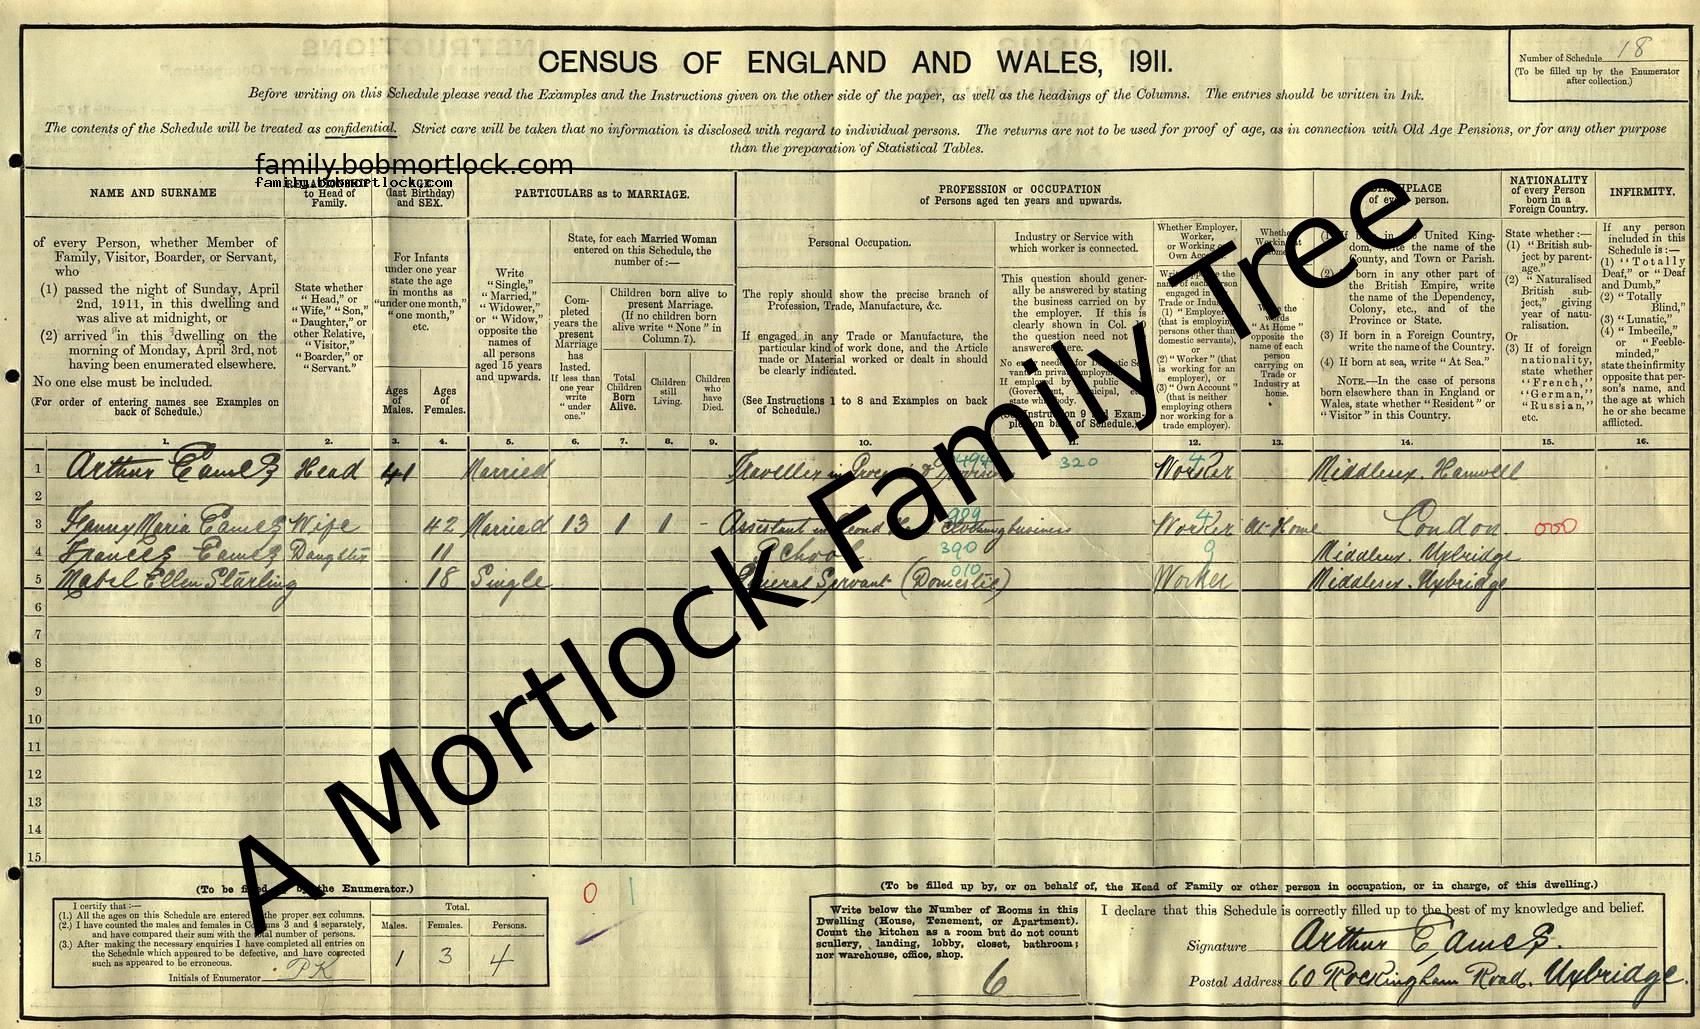 CENSUS OF ENGLAND AND WALES, 1911.
Number of Schedule 18
(To be filled up by the Enumerator
after collection.)
Before writing on this Schedule please read the Examples and the Instructions given on the other side of the paper, as well as the headings of the Columns. The entries should be written in Ink.
The contents of the Schedule will be treated as confidential. Strict care will be taken that no information is disclosed with regard to individual persons. The returns are not to be used for proof of age, as in connection with Old Age Pensions, or for any other purpose
than the preparation of Statistical Tables.
family.bobmortlock.com
family.bobmortlock.com
A Mortlock Family Tree
NAME AND SURNAME
of every Person, whether Member of
Family, Visitor, Boarder, or Servant,
who
(1) passed the night of Sunday, April
2nd, 1911, in this dwelling and
was alive at midnight, or
(2) arrived in this dwelling on the
morning of Monday, April 3rd, not
having been enumerated elsewhere.
No one else must be included.
(For order of entering names see Examples on
back of Schedule.)
to Head of
Family.
State whether
"Head," or
"Wife," "Son,"
"Daughter," or
other Relative,
"Visitor,"
"Boarder," or
"Servant."
(last Birthday)
and SEX.
For Infants
under one year
state the age
in months as
"under one month,"
"one month,"
etc.
Ages
of
Males.
Ages
of
Females.
PARTICULARS as to MARRIAGE.
Write
"Single,"
"Married,"
"Widower,"
or "Widow,"
opposite the
names of
all persons
aged 15 years
and upwards.
State, for each Married Woman
entered on this Schedule, the
number of:—
Completed
years the
present
Marriage
has
lasted.
If less than
one year
write
"under
one."
Children born alive to
present Marriage.
(If no children born
alive write "None" in
Column 7).
Total
Children
Born
Alive.
Children
still
Living.
Children
who
have
Died.
PROFESSION or OCCUPATION
of Persons aged ten years and upwards.
Personal Occupation.
The reply should show the precise branch of
Profession, Trade, Manufacture, &c.
If engaged in any Trade or Manufacture, the
particular kind of work done, and the Article
made or Material worked or dealt in should
be clearly indicated.
(See Instructions 1 to 8 and Examples on back
of Schedule.)
Industry or Service with
which worker is connected.
This question should gener-
ally be answered by stating
the business carried on by
the employer. If this is
clearly shown in Col. 
the question need not 
answered here.
Whether Employer,
Worker,
or Working on
Own Account
BIRTHPLACE
of every person.
(3) If born in a Foreign Country,
write the name of the Country.
(4) If born at sea, write "At Sea."
NOTE.—In the case of persons
born elsewhere than in England or
Wales, state whether "Resident" or
"Visitor" in this Country.
NATIONALITY
of every Person
born in a
Foreign Country.
State whether:—
(1) "British sub-
ject by parent-
age."
(2) "Naturalised
British sub-
ject," giving
year of natu-
ralisation.
Or
(3) If of foreign
nationality,
state whether
"French,"
"German,"
"Russian,"
etc.
INFIRMITY.
If any person
included in this
Schedule is:—
(1) "Totally
Deaf," or "Deaf
and Dumb,"
(2) "Totally
Blind,"
(3) "Lunatic,"
(4) "Imbecile,"
or "Feeble-
minded,"
state the infirmity
opposite that per-
son's name, and
the age at which
he or she became
afflicted.
1. 2. 3. 4. 5. 6. 7. 8. 9. 10. 11. 12. 13. 14. 15. 16.
1 Arthur Eames Head 41 Married Traveller in 494 320 Worker Middlesex. Hanwell
2
3 Fanny Maria Eames Wife 42 Married 13 1 1 - Assistant in Second Clothing business 909 Worker At Home London 000
4 Frances Eames Daughter 11 School 390 9 Middlesex. Uxbridge
5 Mabel Ellen Starling 18 Single General Servant (Domestic) 010 Worker Middlesex. Uxbridge
6
7
8
9
10
11
12
13
14
15
(To be filled up by the Enumerator.)
I certify that:—
(1.) All the ages on this Schedule are entered in the proper sex columns.
(2.) I have counted the males and females in Columns 3 and 4 separately,
and have compared their sum with the total number of persons.
(3.) After making the necessary enquiries I have completed all entries on
the Schedule which appeared to be defective, and have corrected
such as appeared to be erroneous.
Initials of Enumerator PK
Total.
Males. Females. Persons.
1 3 4
0 1
(To be filled up by, or on behalf of, the Head of Family or other person in occupation, or in charge, of this dwelling.)
Write below the Number of Rooms in this
Dwelling (House, Tenement, or Apartment).
Count the kitchen as a room but do not count
scullery, landing, lobby, closet, bathroom;
nor warehouse, office, shop.
6
I declare that this Schedule is correctly filled up to the best of my knowledge and belief.
Signature Arthur Eames.
Postal Address 60 Rockingham Road. Uxbridge.